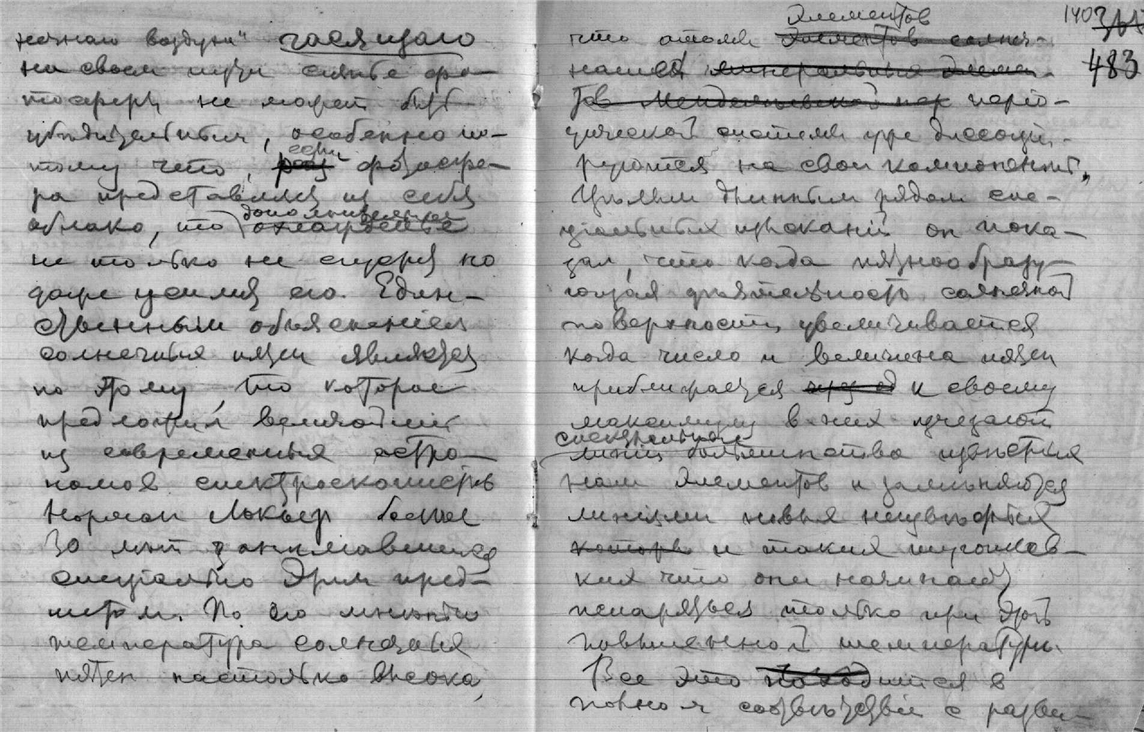 нечнаго воздуха" гасящаго
на своем пути сиянье фо-
тосферы не может быть
убедительным, особенно по-
тому что, если фотосфе-
ра представляет из себя
облако, то дополнительное
не только не сотрет но
даже усилит его. Един-
ственным объяснением
солнечных пятен является
по этому, то которое
предложил величайший
из современных астро-
номов спектроскопистов
Норман Локьер более
30 лет занимавшийся
специально этим пред-
метом. По его мнению
температура солнечных
пятен настолько высока,
1403
483
элементов
что атомы
нашей
перио-
дической системы уже диссоци-
руются на свои компоненты.
Целым длинным рядом спе-
циальных изысканий он пока-
зал, что когда пятнообразу-
ющая деятельность солнечной
поверхности увеличивается
когда число и величина пятен
приближается к своему
максимуму в них исчезают
спектральные
линии большинства известных
нам элементов и заменяются
линиями новых неизвестных
и таких
ких что они начинают
только при этой
повышенной температуре.
Все это
полном соответствии с разви-